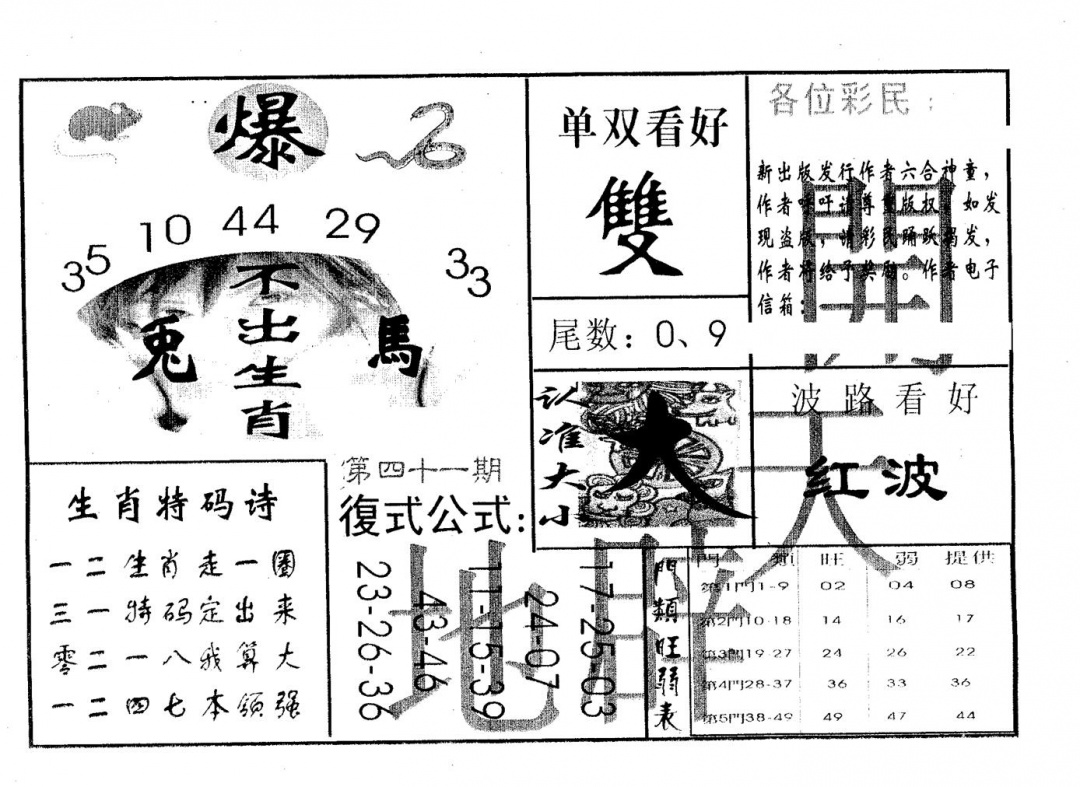 爆
35 10 44 29 33
不出生肖
兔
馬
单双看好
雙
尾数：0、9
各位彩民：
新出版发行作者六合神童，
作者呼吁请尊重版权。如发
现盗版，请彩民踊跃揭发，
作者将给予奖励。作者电子
信箱：
認准大小
大
波路看好
红波
生肖特码诗
一二生肖走一圈
三一特码定出来
零二一八我算大
一二四七本领强
第四十一期
復式公式：
23-26-36
43-46
11-15-39
24-07
17-25-03
門類旺弱表
門類 旺 弱 提供
第1門1-9 02 04 08
第2門10-18 14 16 17
第3門19-27 24 26 22
第4門28-37 36 33 36
第5門38-49 49 47 44
開
天
地